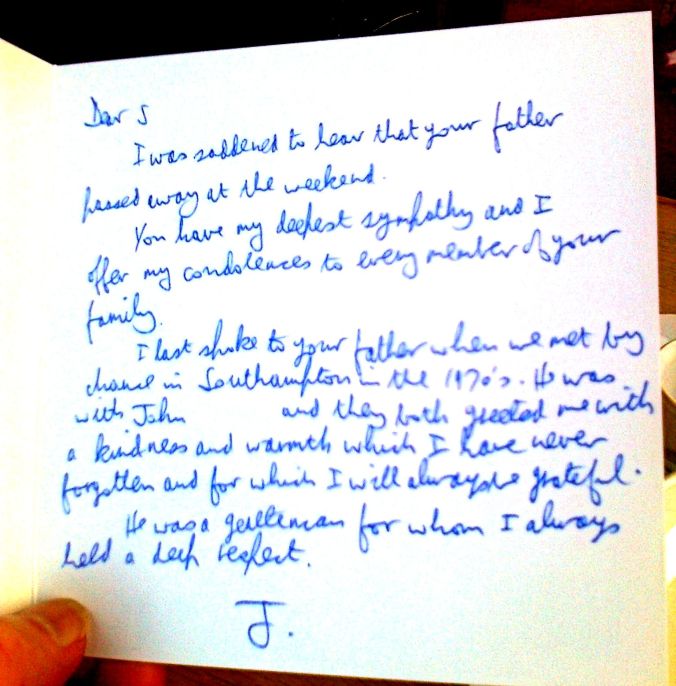 Dear S
I was saddened to hear that your father
passed away at the weekend.
You have my deepest sympathy and I
offer my condolences to every member of your
family.
I last spoke to your father when we met by
chance in Southampton in the 1970's. He was
with John and they both greeted me with
a kindness and warmth which I have never
forgotten and for which I will always be grateful.
He was a gentleman for whom I always
held a deep respect.
J.